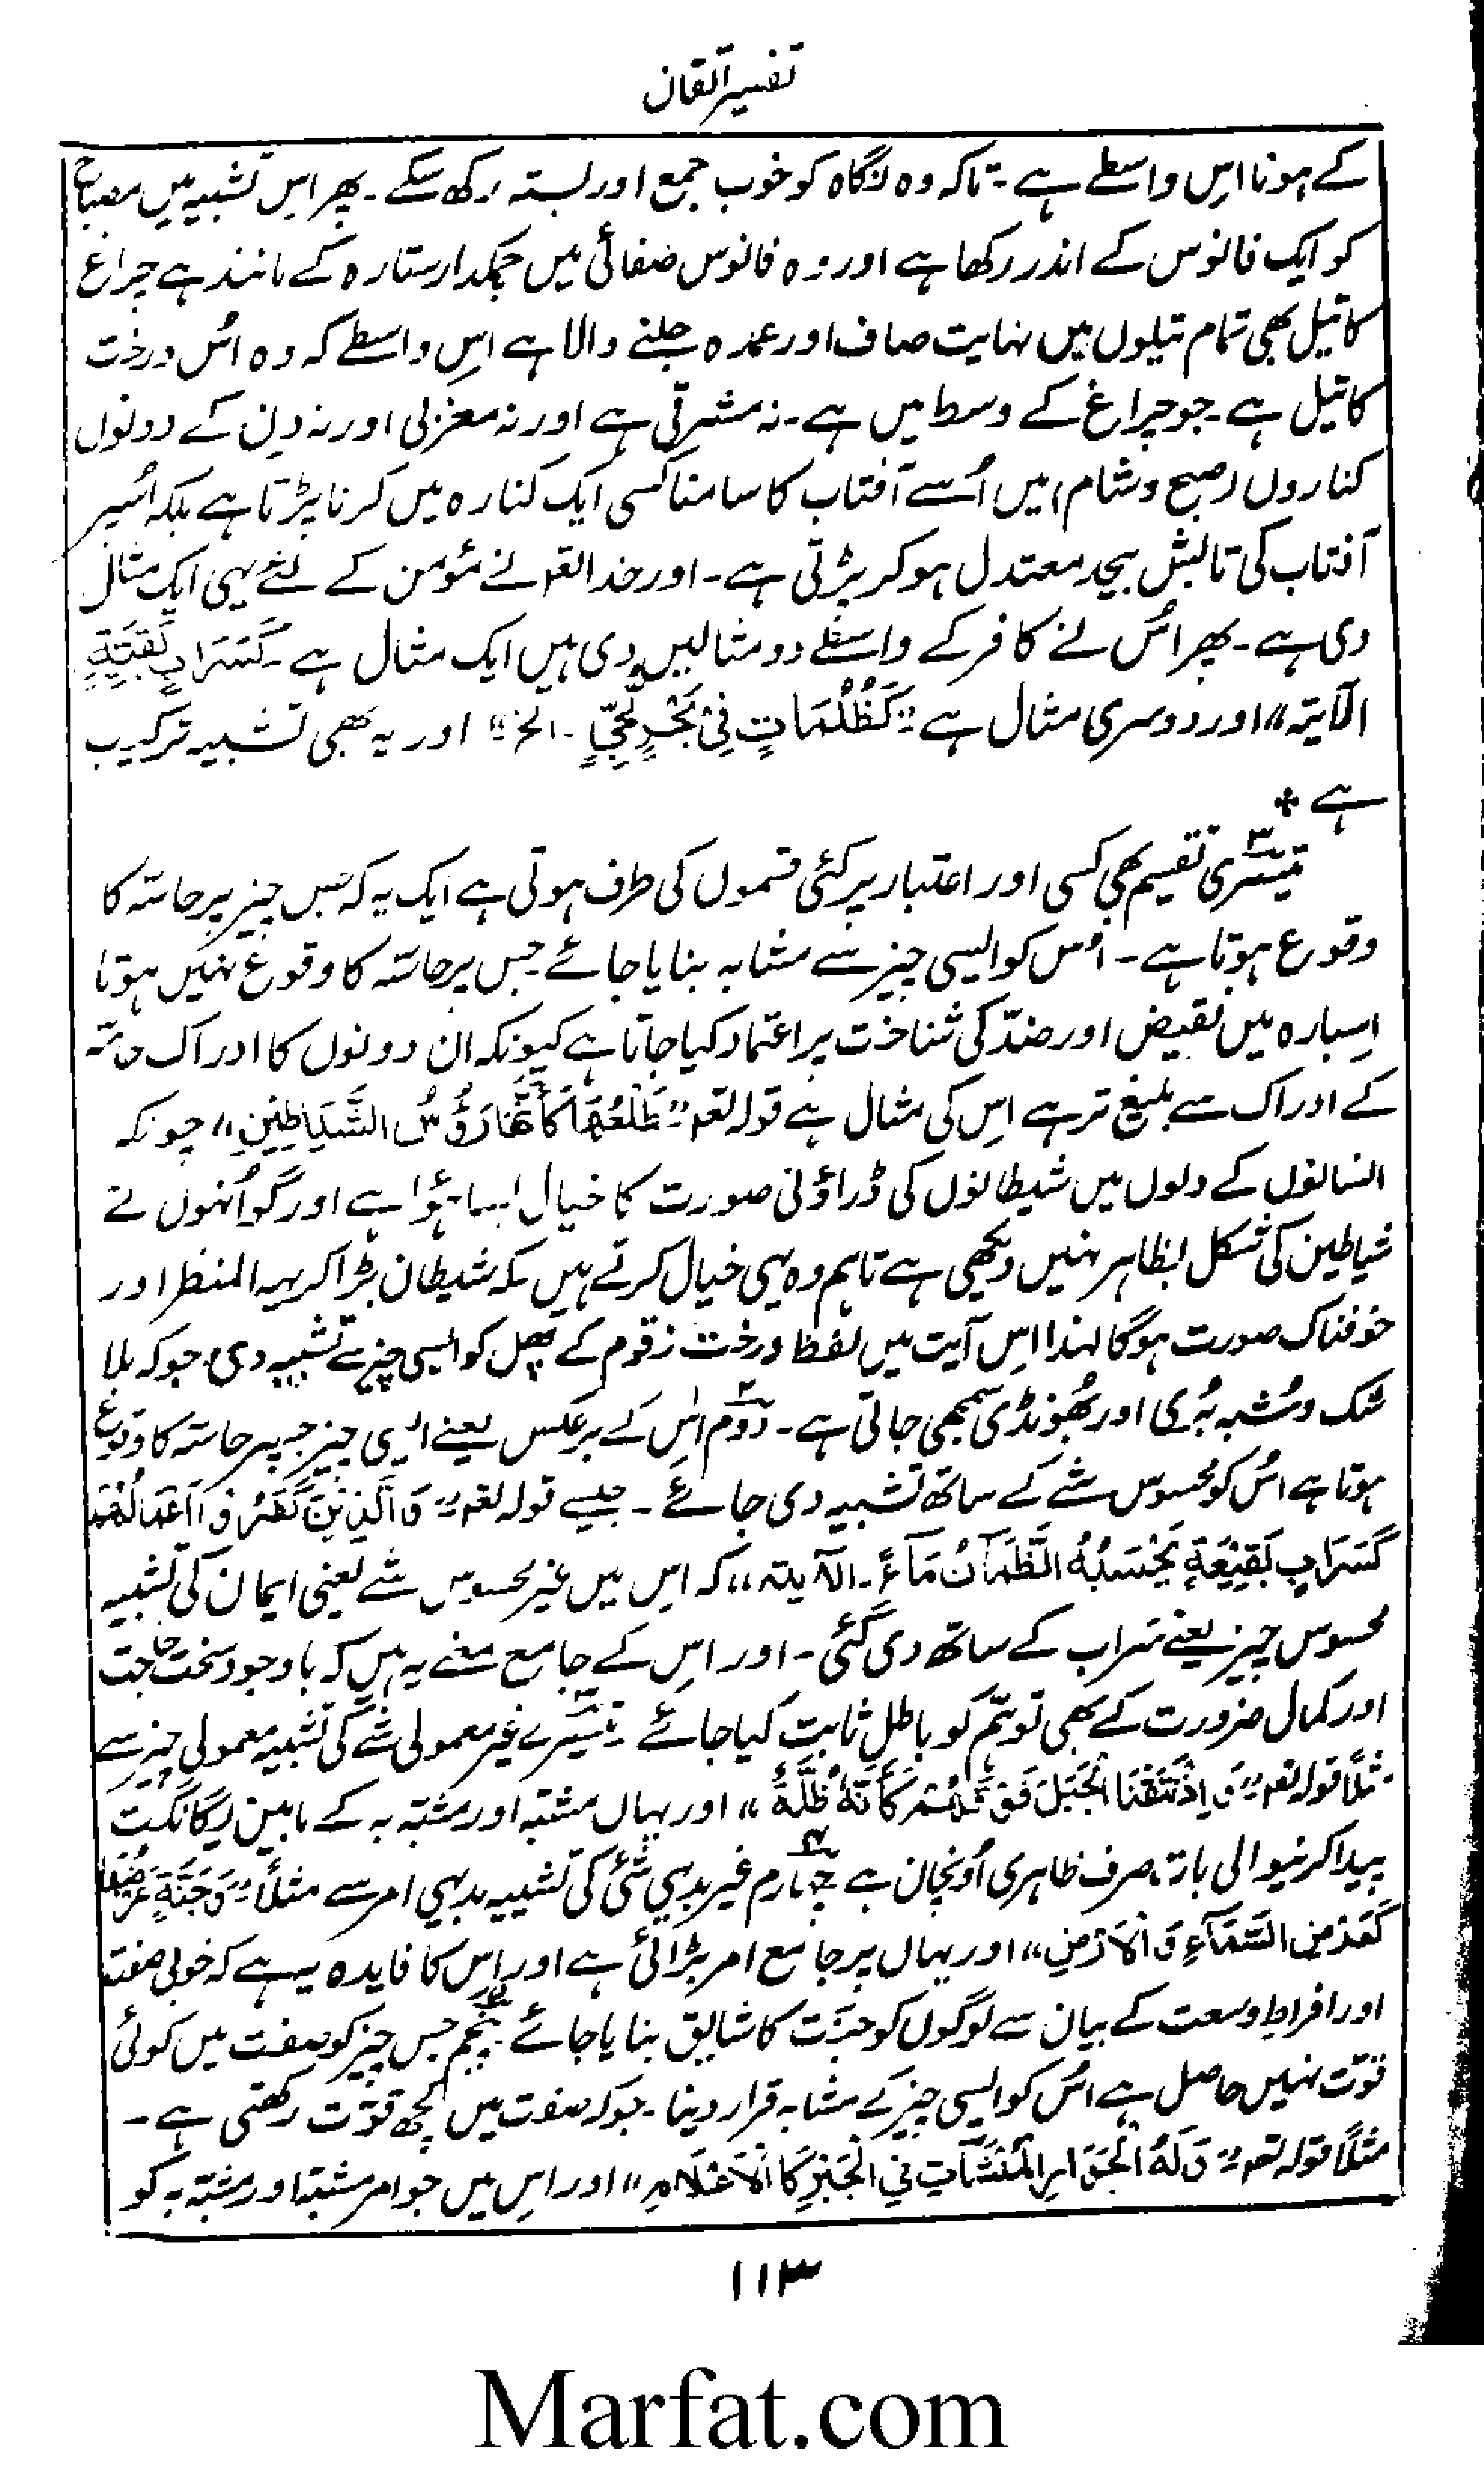 تفسیر اتقان
کے ہونا اِس واسطے ہے۔ تاکہ وہ نگاہ کو خوب جمع اور بستہ رکھ سکے۔ پھر اس تشبیہ میں مصباح
کو ایک فانوس کے اندر رکھا ہے اور وہ فانوس صفائی میں چمکدار ستارہ کے مانند ہے چراغ
کا تیل بھی تمام تیلوں میں نہایت صاف اور عمدہ جلنے والا ہے اِس واسطے کہ وہ اُس درخت
کا تیل ہے۔ جو چراغ کے وسط میں ہے۔ نہ مشرقی ہے اور نہ مغربی اور نہ دِن کے دونوں
کناروں (صبح و شام) میں اُسے آفتاب کا سامنا کسی ایک کنارہ میں کرنا پڑتا ہے بلکہ اُسپر
آفتاب کی تابش بیحد معتدل ہو کر پڑتی ہے۔ اور خدا تعہ نے مؤمن کے لئے یہی ایک مثال
دی ہے۔ پھر اُس نے کافر کے واسطے دو مثالیں دی ہیں ایک مثال ہے۔ کَسَرَابٍ بِقِیْعَۃٍ
الآیتہ" اور دوسری مثال ہے "کَظُلُمَاتٍ فِیْ بَحْرٍ لُّجِّیٍّ۔ الخ" اور یہ بھی تشبیہ ترکیب
ہے *
تیسری تقسیم بھی کسی اور اعتبار پر کئی قسموں کی طرف ہوتی ہے ایک یہ کہ جس چیز پر حاسّہ کا
وقوع ہوتا ہے۔ اُس کو ایسی چیز سے مشابہ بنایا جائے جس پر حاسّہ کا وقوع نہیں ہوتا
اِسبارہ میں نقیض اور ضدّ کی شناخت پر اعتماد کیا جاتا ہے کیونکہ ان دونوں کا ادراک حاسّہ
کے ادراک سے بلیغ تر ہے اِس کی مثال ہے قولہ تعہ "طَلْعُهَا کَأَنَّهَا رَؤُسُ الشَّیَاطِیْنِ" چونکہ
انسانوں کے دلوں میں شیطانوں کی ڈراؤنی صورت کا خیال بسا ہؤا ہے اور گو اُنہوں نے
شیاطین کی شکل بظاہر نہیں دیکھی ہے تاہم وہ یہی خیال کرتے ہیں کہ شیطان بڑا کریہہ المنظر اور
خوفناک صورت ہوگا لہذا اِس آیت میں لفظ درخت زقوم کے پھل کو ایسی چیز سے تشبیہ دی جو کہ بلا
شک و شبہ بُری اور بھُونڈی سمجھی جاتی ہے۔ دوّم اِس کے برعکس یعنے ایسی چیز جسپر حاسّہ کا وقوع
ہوتا ہے اُس کو محسوس شے کے ساتھ تشبیہ دی جائے۔ جیسے قولہ تعہ "وَالَّذِیْنَ کَفَرُوْا اَعْمَالُهُمْ
کَسَرَابٍ بِقِیْعَۃٍ یَحْسَبُهُ الظَّمْآنُ مَآءً۔ الآیتہ" کہ اِس میں غیر محسوس شے یعنی ایمان کی تشبیہ
محسوس چیز یعنے سراب کے ساتھ دی گئی۔ اور اس کے جامع معنے یہ ہیں کہ باوجود سخت حاجت
اور کمال ضرورت کے بھی توہّم کو باطل ثابت کیا جائے۔ تیسرے غیر معمولی شے کی تشبیہ معمولی چیز سے
مثلاً قولہ تعہ "وَاِذْ نَتَقْنَا الْجَبَلَ فَوْقَهُمْ کَأَنَّهٗ ظُلَّۃٌ" اور یہاں مشبّہ اور مشبّہ بہ کے مابین یگانگت
پیدا کرنیوالی بات صرف ظاہری اُونچان ہے چہارم غیر بدیہی شئی کی تشبیہ بدیہی امر سے مثلاً "وَجَنَّۃٍ عَرْضُهَا
کَعَرْضِ السَّمَآءِ وَالْاَرْضِ" اور یہاں پر جامع امر بڑائی ہے اور اِس کا فایدہ یہ ہے کہ خوبی صفت
اور افراط وسعت کے بیان سے لوگوں کو جنّت کا شایق بنایا جائے پنجم جس چیز کو صفت میں کوئی
قوّت نہیں حاصل ہے اُس کو ایسی چیز کے مشابہ قرار دینا۔ جو کہ صفت میں کچھ قوّت رکھتی ہے۔
مثلاً قولہ تعہ "وَلَهُ الْجَوَارِ الْمُنْشَآتُ فِی الْبَحْرِ کَالْاَعْلَامِ" اور اِس میں جو امر مشبّہ اور مشبّہ بہ کو
۱۱۳
Marfat.com